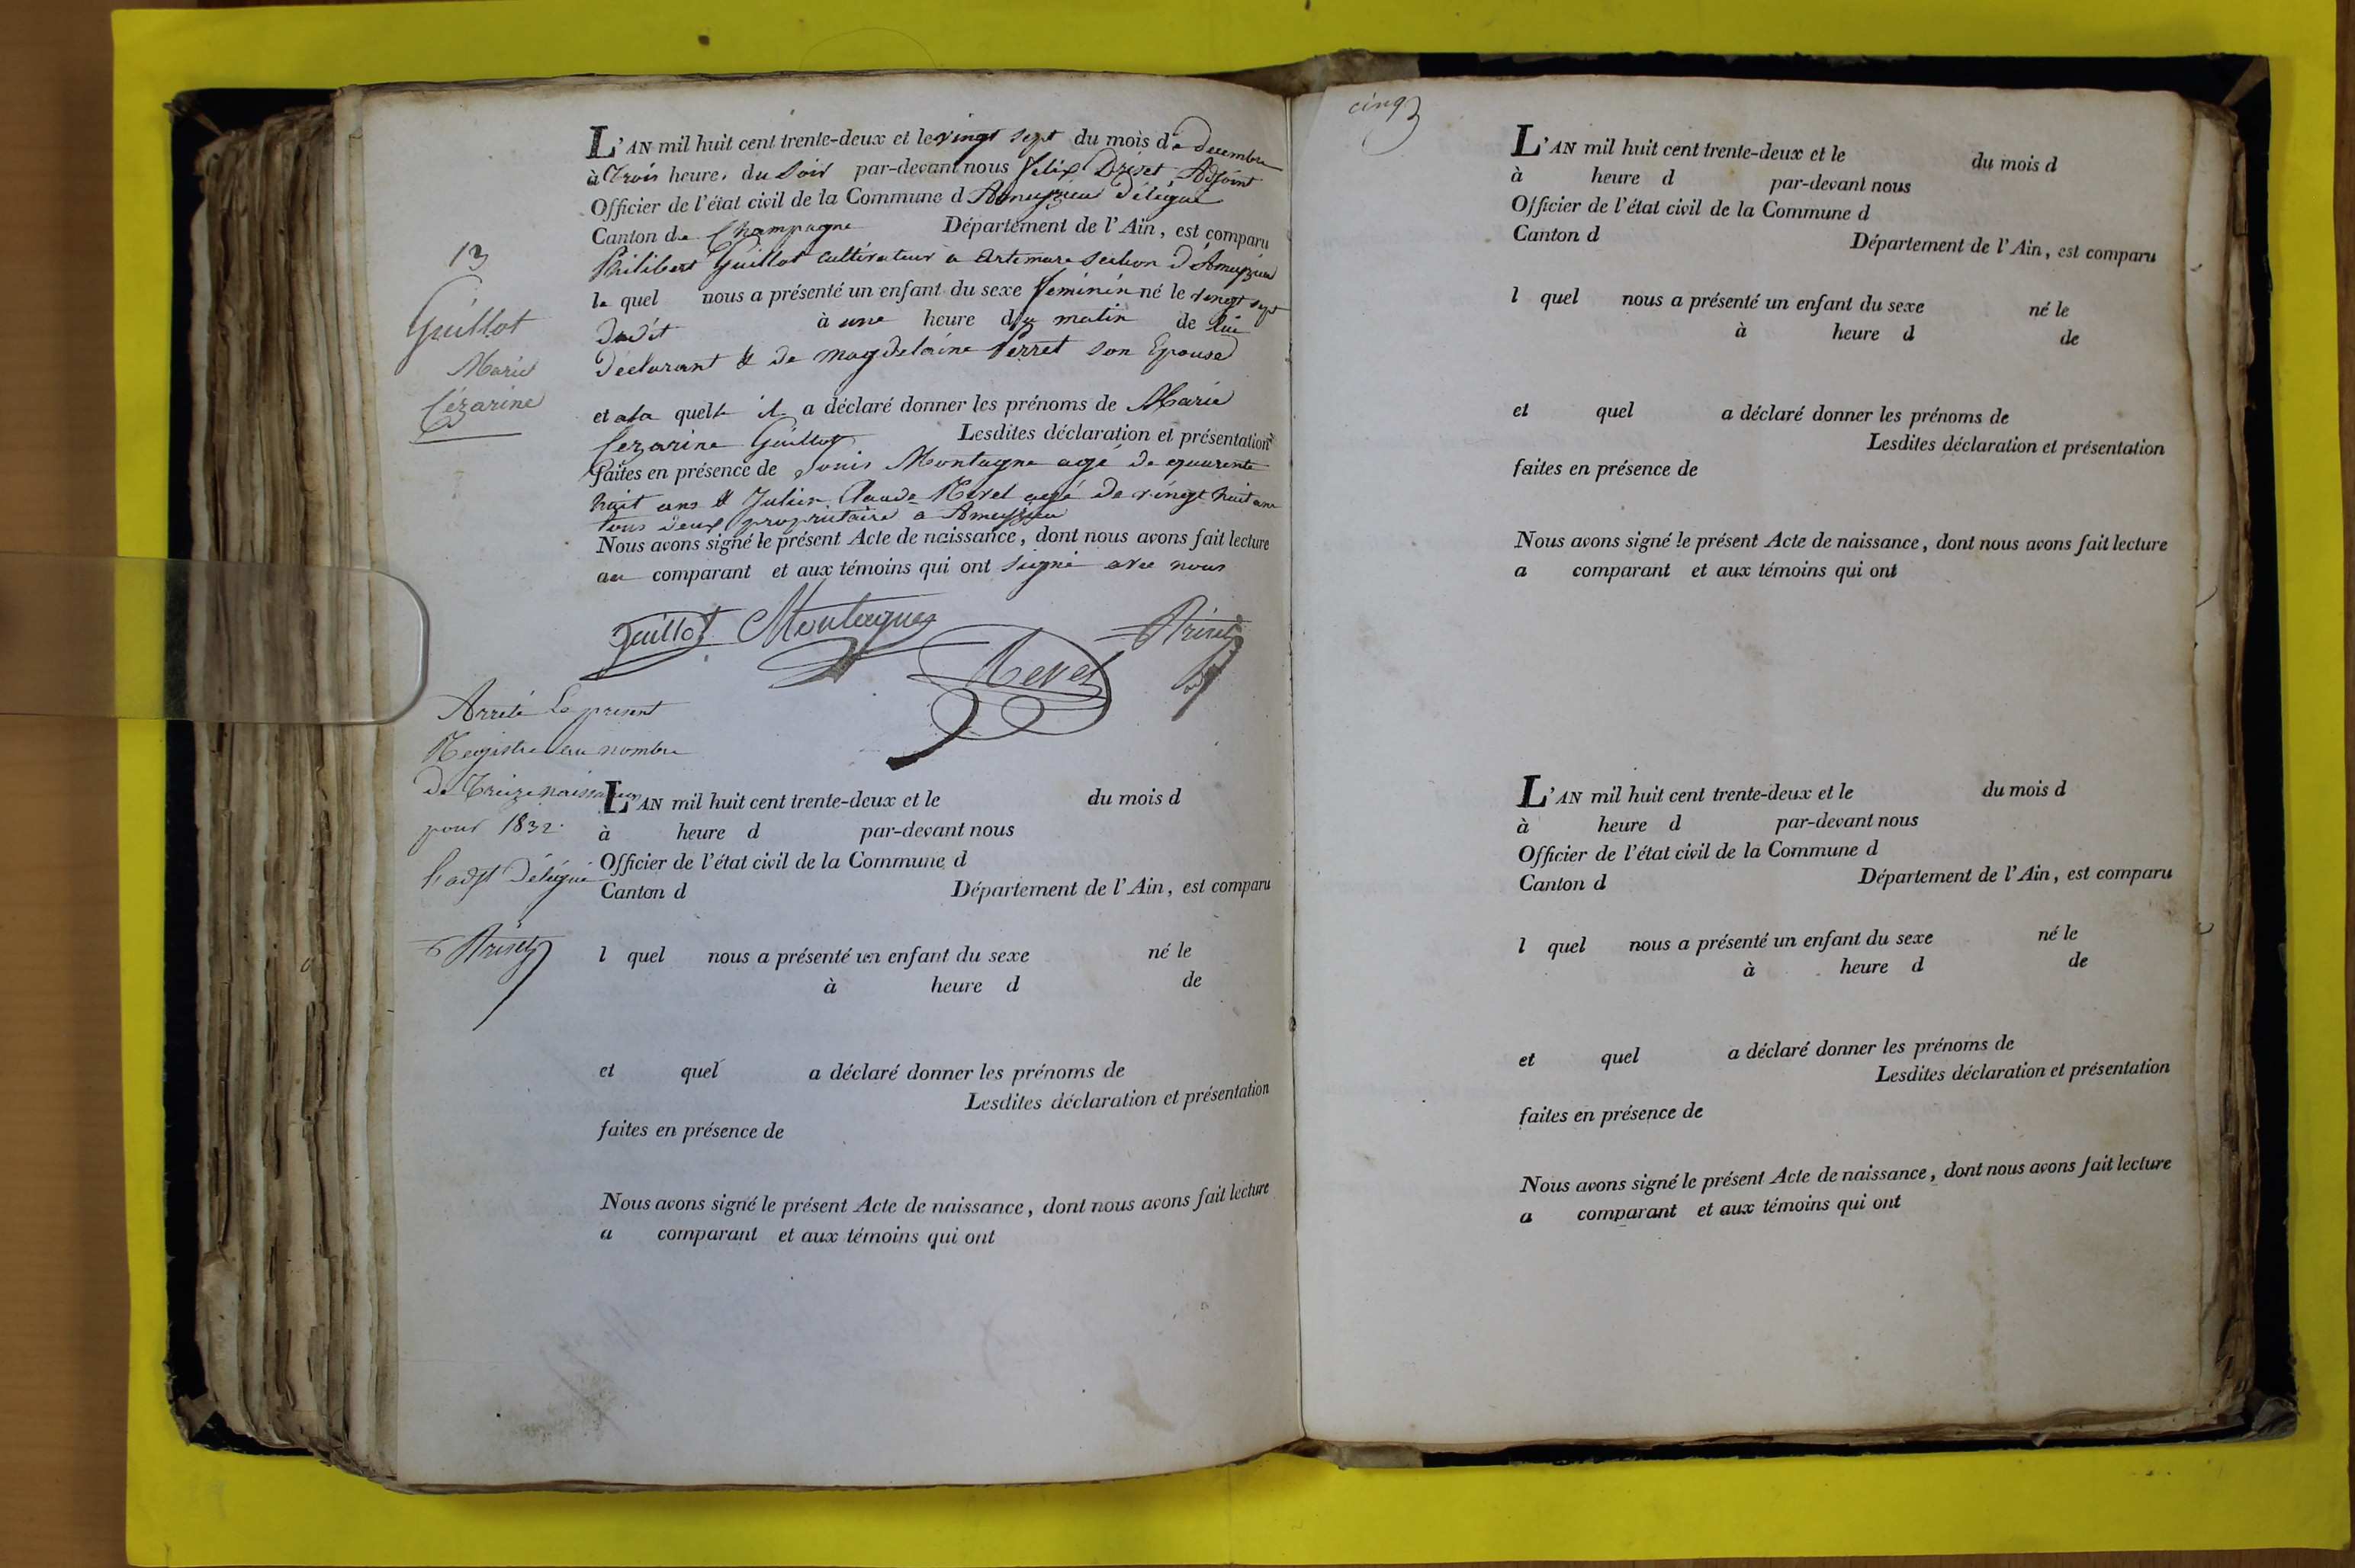 L'AN mil huit cent trente-deux et le vingt sept du mois de Decembre
à Trois heure, du Soir par-devant nous Félix Adjoint
Officier de l'état civil de la Commune d Ameyzieu délégué
Canton de Champagne Département de l'Ain, est comparu
Philibert Guillot cultivateur a Artemare section d'Ameyzieu
le quel nous a présenté un enfant du sexe féminin né le vingt sept
dudit à une heure du matin de lui
déclarant & de magdelaine Perret son Epouse
et ala quelle il a déclaré donner les prénoms de Marie
Cezarine Guillot Lesdites déclaration et présentation
faites en présence de Louis Montagne agé de quarente
huit ans & Julien Claude Revel agé de vingt huit ans
tous deux propriétaire a Ameyzieu
Nous avons signé le présent Acte de naissance, dont nous avons fait lecture
au comparant et aux témoins qui ont signé avec nous
Guillot Montagne
Revel
13
Guillot
Marie
Cézarine
Arrêté Le présent
Registre au nombre
de Treize naissances
pour 1832.
L'adjt Délégué
L'AN mil huit cent trente-deux et le du mois d
à heure d par-devant nous
Officier de l'état civil de la Commune d
Canton d Département de l'Ain, est comparu
l quel nous a présenté un enfant du sexe né le
à heure d de
et quel a déclaré donner les prénoms de
Lesdites déclaration et présentation
faites en présence de
Nous avons signé le présent Acte de naissance, dont nous avons fait lecture
a comparant et aux témoins qui ont
cinq
L'AN mil huit cent trente-deux et le du mois d
à heure d par-devant nous
Officier de l'état civil de la Commune d
Canton d Département de l'Ain, est comparu
l quel nous a présenté un enfant du sexe né le
à heure d de
et quel a déclaré donner les prénoms de
Lesdites déclaration et présentation
faites en présence de
Nous avons signé le présent Acte de naissance, dont nous avons fait lecture
a comparant et aux témoins qui ont
L'AN mil huit cent trente-deux et le du mois d
à heure d par-devant nous
Officier de l'état civil de la Commune d
Canton d Département de l'Ain, est comparu
l quel nous a présenté un enfant du sexe né le
à heure d de
et quel a déclaré donner les prénoms de
Lesdites déclaration et présentation
faites en présence de
Nous avons signé le présent Acte de naissance, dont nous avons fait lecture
a comparant et aux témoins qui ont